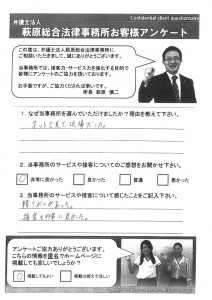 Confidential client questionnaire
弁護士法人
萩原総合法律事務所お客様アンケート
この度は、弁護士法人萩原総合法律事務所に
ご相談いただきまして、誠にありがとうございます。
当事務所では、接客力・サービス力を強化する目的で
皆様にアンケートのご協力を頂いております。
お手数ですが、ご協力くだされば幸いです。
所長 萩原 慎二
1. なぜ当事務所を選んでいただけましたか？理由を教えて下さい。
ネットで見て、近場だった。
2. 当事務所のサービスや接客についてのご感想をお聞かせ下さい。
非常に良かった 良かった 普通 悪かった
3. 当事務所のサービスや接客について感じたことをご記入下さい。
頼りがいがあった。
接客も非常に良かった。
アンケートご協力ありがとうございます。
こちらの情報を匿名でホームページに
掲載しても宜しいでしょうか？
掲載してもよい 掲載は控えて欲しい